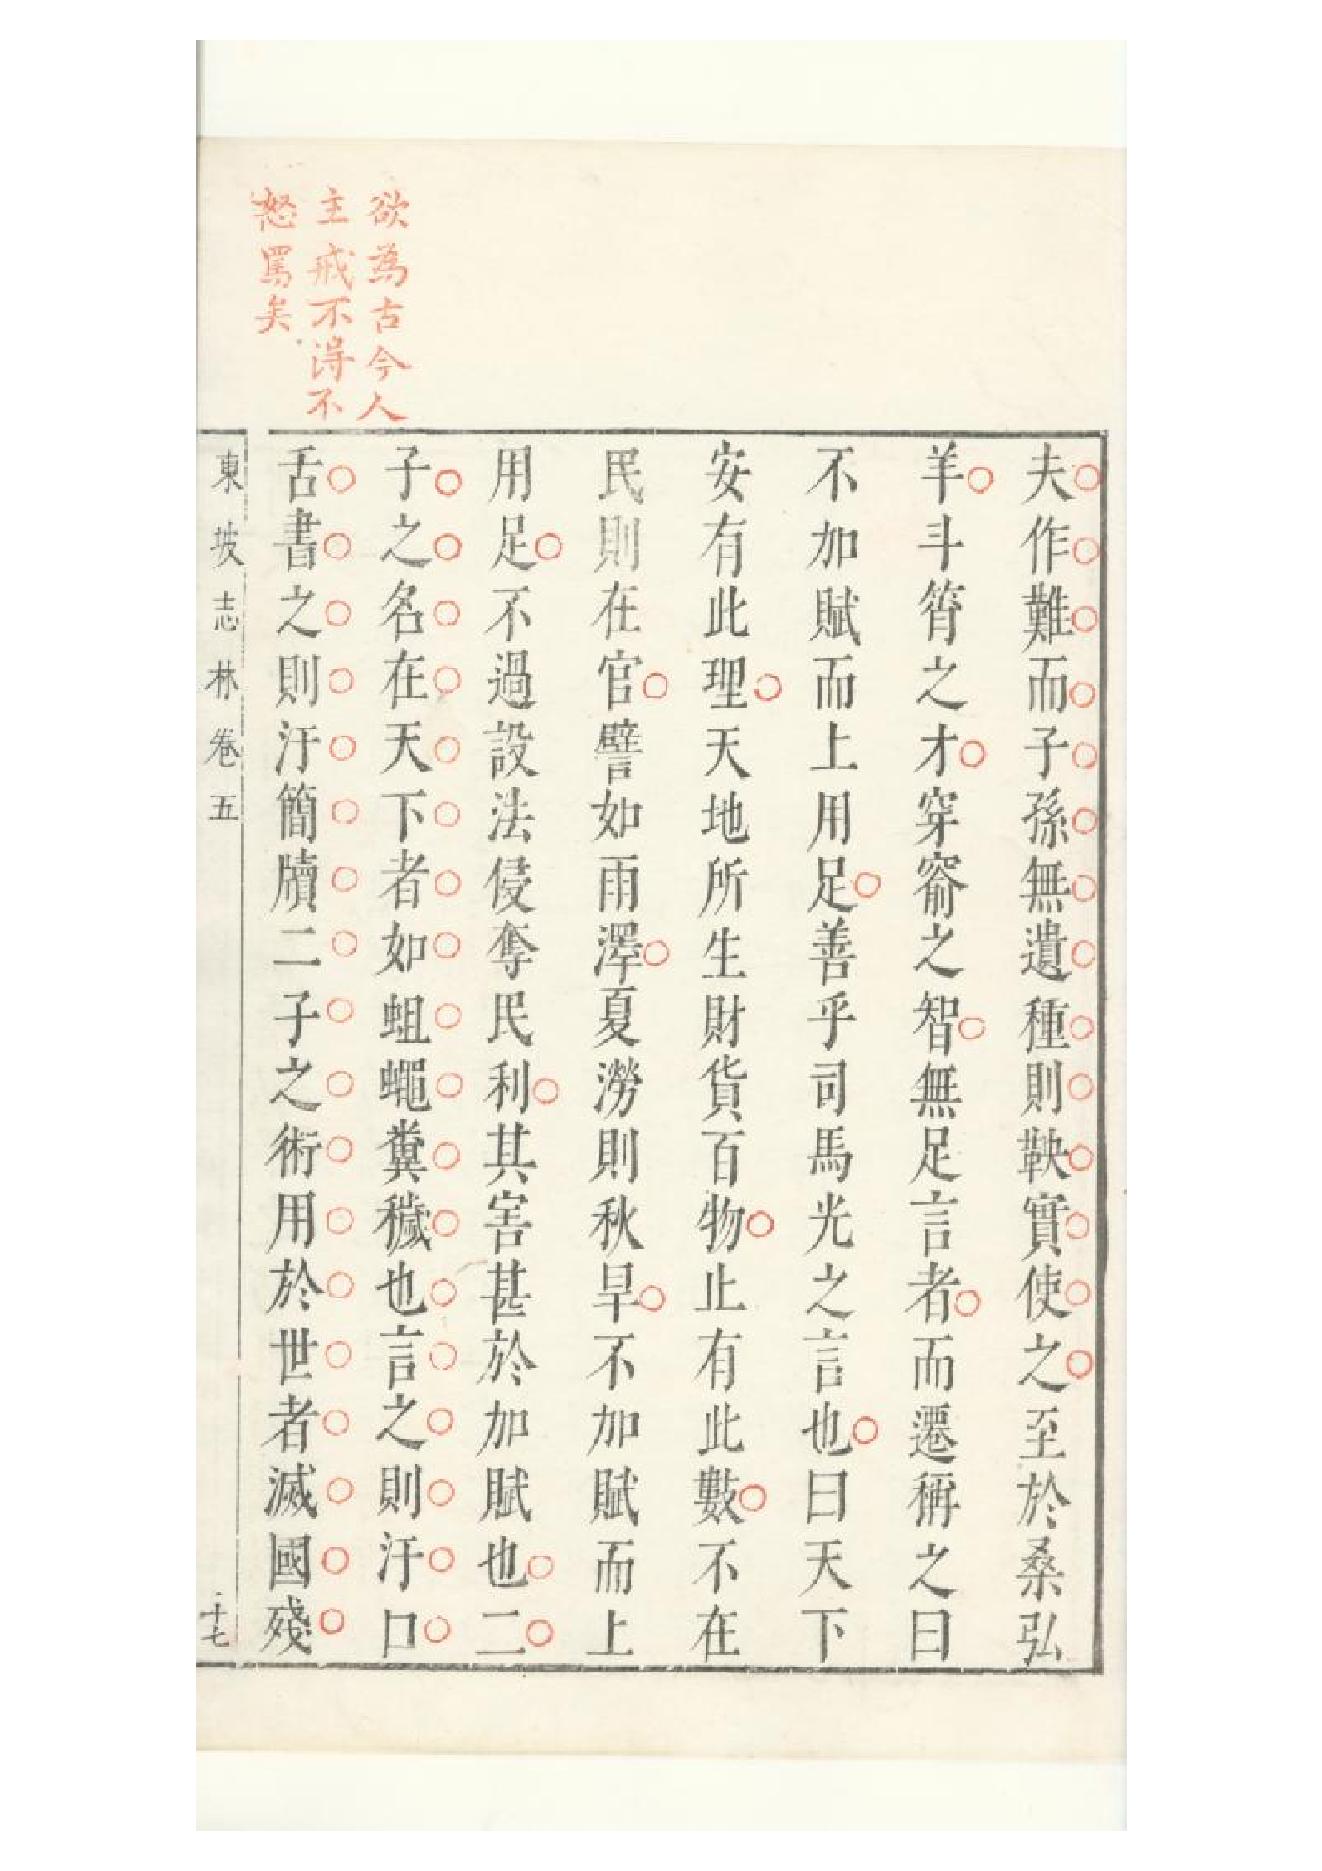 欲為古今人
主戒不得不
怒罵矣
夫作難而子孫無遺種則鞅實使之至於桑弘
羊斗筲之才穿窬之智無足言者而遷稱之曰
不加賦而上用足善乎司馬光之言也曰天下
安有此理天地所生財貨百物止有此數不在
民則在官譬如雨澤夏澇則秋旱不加賦而上
用足不過設法侵奪民利其害甚於加賦也二
子之名在天下者如蛆蠅糞穢也言之則汙口
舌書之則汙簡牘二子之術用於世者滅國殘
東坡志林卷五
十七